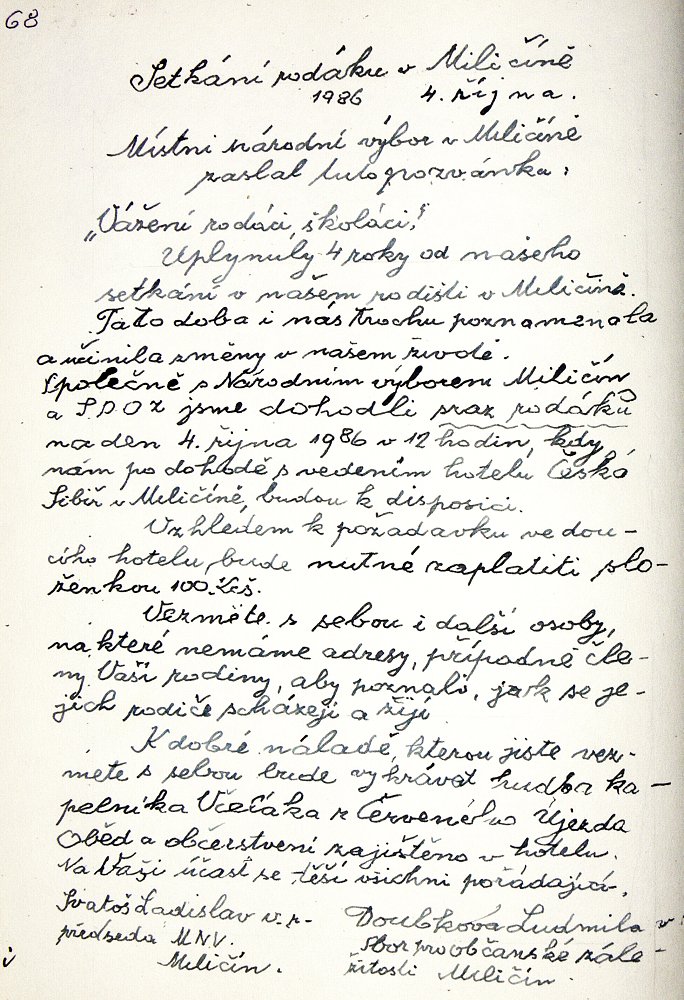 68
Setkání rodáku v Miličíně
1986 4. října.
Místni národní výbor v Miličíně
zaslal tuto pozvánku:
„Vážení rodáci, školáci!"
Uplynuly 4 roky od našeho
setkání v našem rodišti v Miličíně.
Tato doba i nás trochu poznamenala
a učinila změny v našem životě.
Společně s Národním výborem Miličín
a SPOZ jsme dohodli sraz rodáků
na den 4. října 1986 v 12 hodin, kdy
nám po dohodě s vedením hotelu Česká
Sibiř v Miličíně, budou k disposici.
Vzhledem k požadavku vedou-
cího hotelu, bude nutné zaplatiti slo-
ženkou 100.-Kčs.
Vezměte s sebou i další osoby,
na které nemáme adresy, případně čle-
ny Vaší rodiny, aby poznali, jak se je-
jich rodiče scházejí a žijí
K dobré náladě, kterou jiste vez-
mete s sebou bude vyhrávat hudba ka-
pelníka Včeláka z Červeného Újezda
Oběd a občerstvení zajištěno v hotelu.
Na Vaši účast se těší všichni pořádající.
Svatoš Ladislav v.r. Doubková Ludmila v
předseda MNV. sbor pro občanské zále-
Miličín. žitosti Miličín.